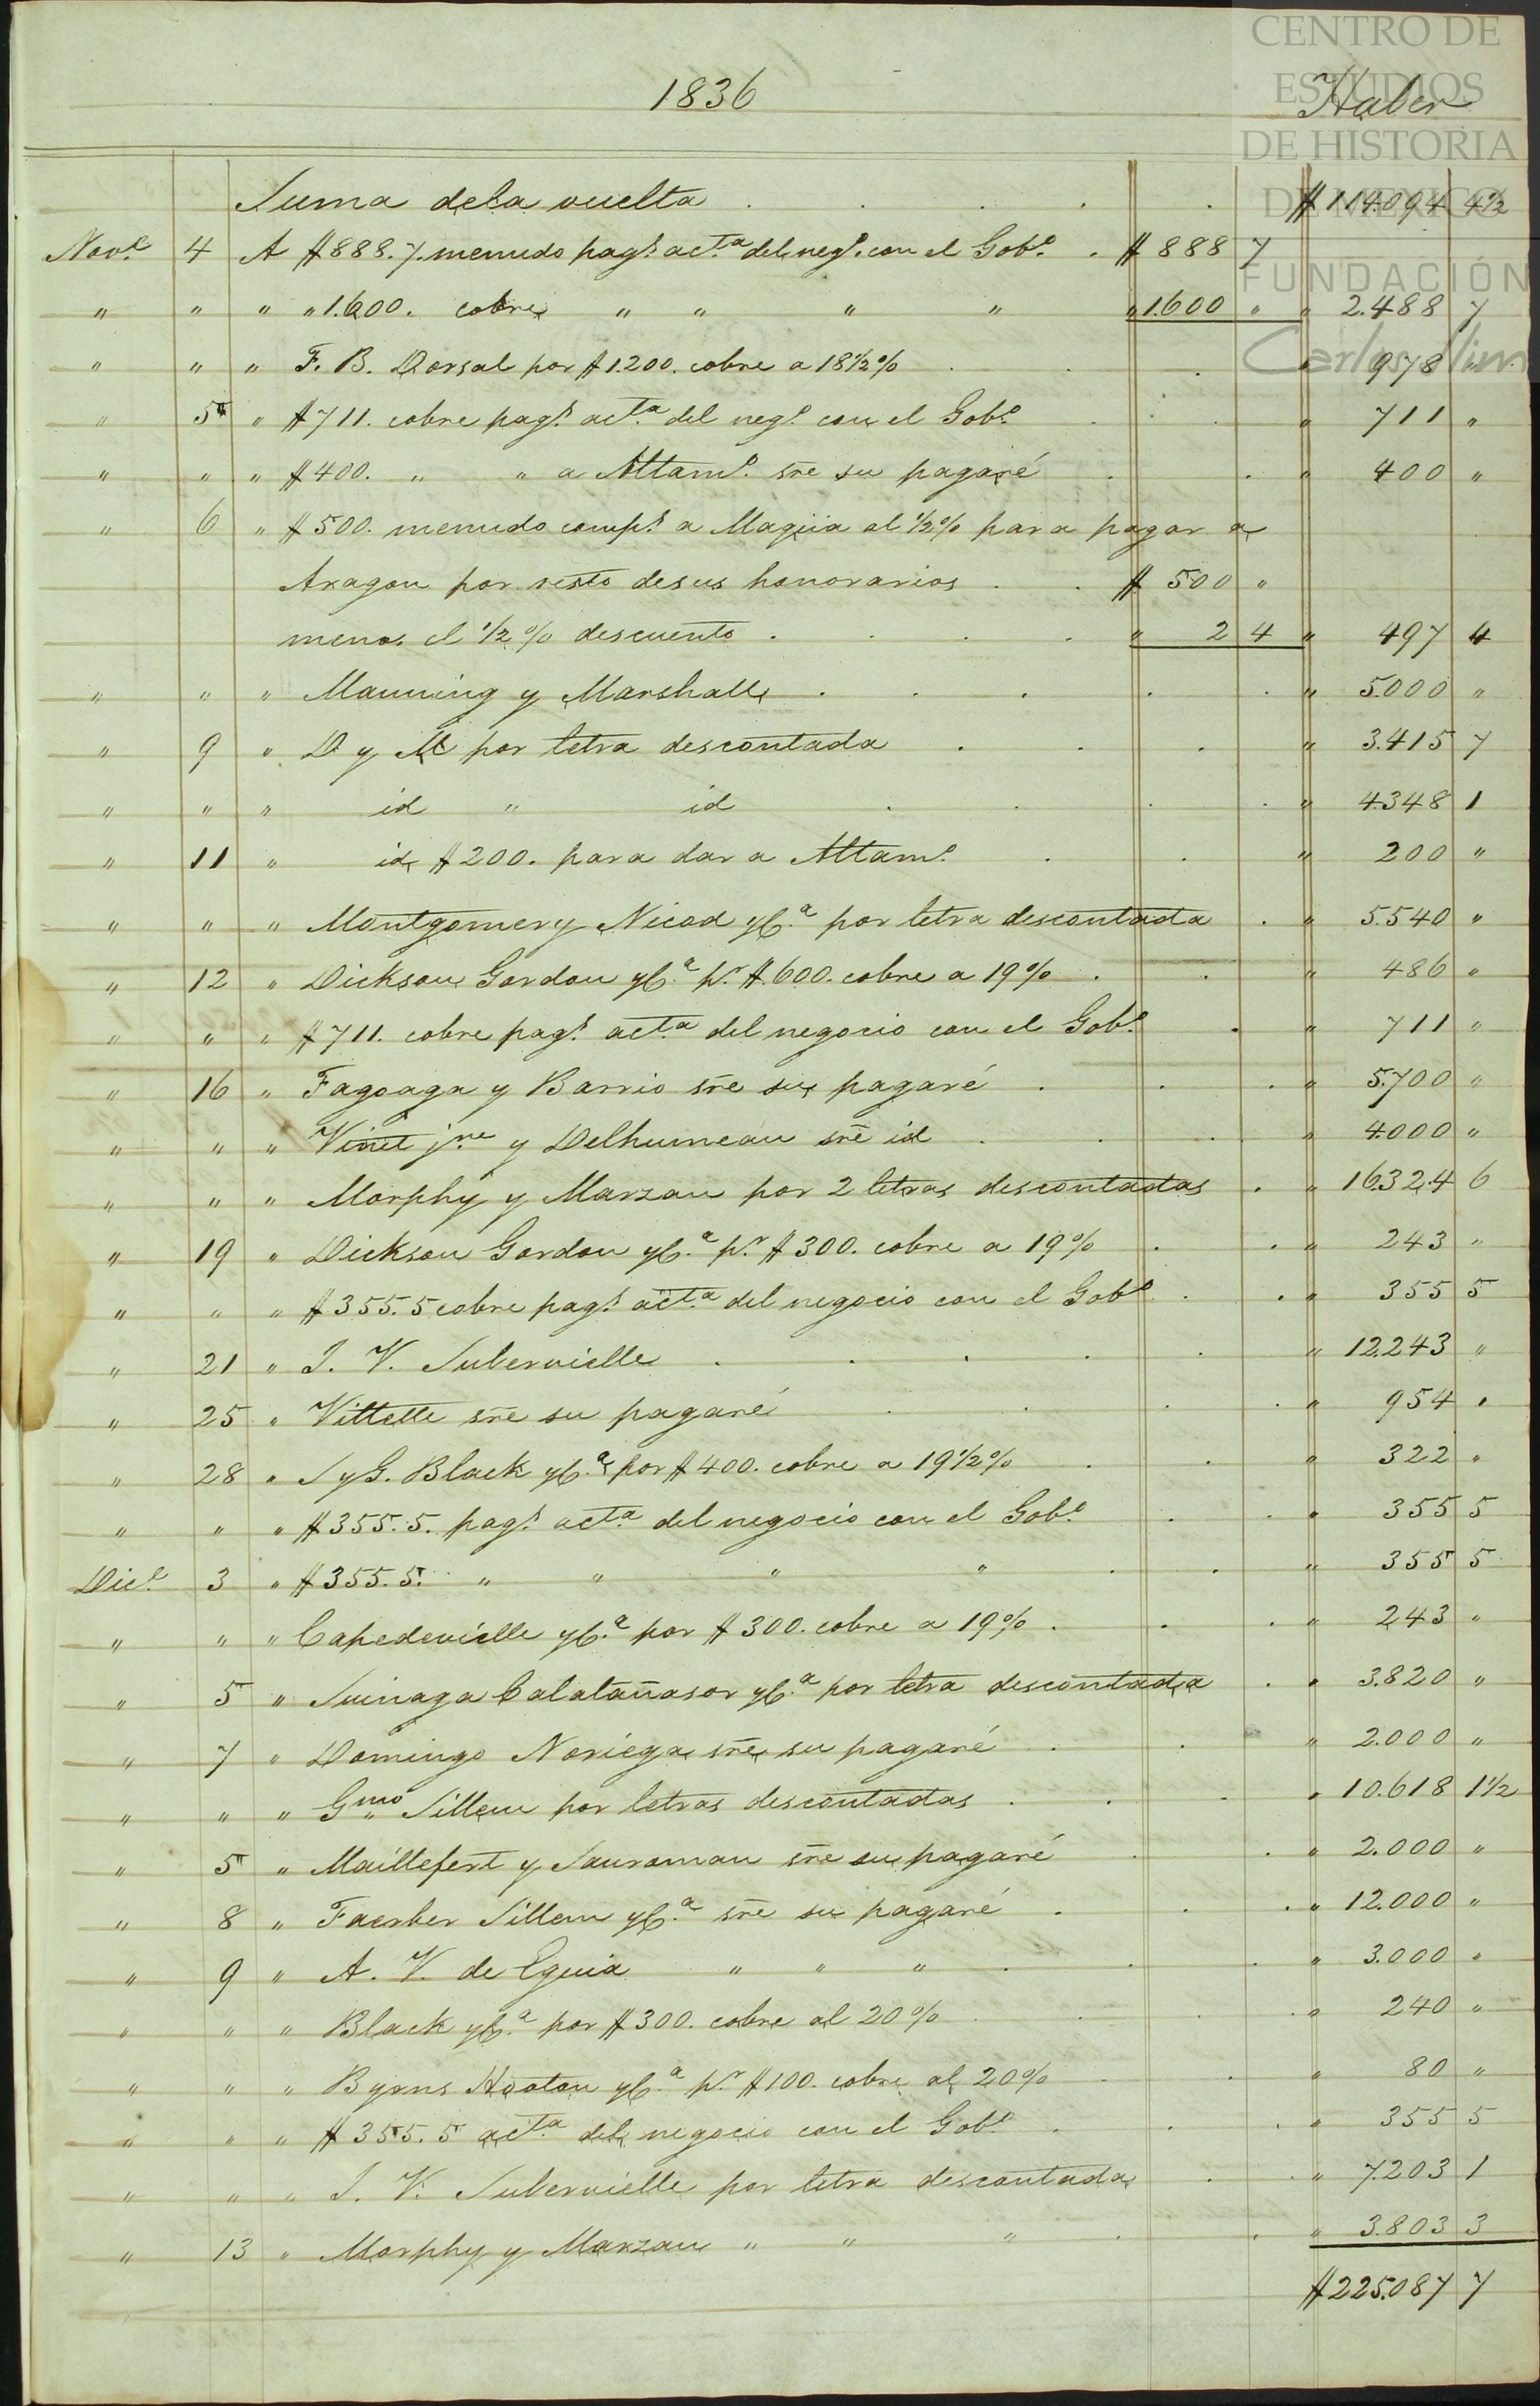 CENTRO DE
ESTUDIOS
DE HISTORIA
DE MEXICO
FUNDACIÓN
Carlos Slim
1836 Haber
Suma dela vuelta $ 114.094 4½
Nove. 4 A $888.7. menudo pago. acta. del nego. con el Gobo. $ 888 7
" " " " 1.600. cobre " " " " " 1.600 " " 2.488 7
" " " F. B. Dorsal por $1.200. cobre a 18½% " 978 "
" 5 " $711. cobre pago. acta. del nego. con el Gobo. " 711 "
" " " $400. " " a Altamo. sre su pagaré " 400 "
" 6 " $500. menudo compo. a Maguia al ½% para pagar a
Aragon por resto desus honorarios $ 500 "
menos el ½% descuento " 2 4 " 497 4
" " " Manning y Marshall " 5.000 "
" 9 " D y M por letra descontada " 3.415 7
" " " id " id " 4.348 1
" 11 " id $200. para dar a Altamo. " 200 "
" " " Montgomery Nicod yCa. por letra descontada " 5.540 "
" 12 " Dickson Gordon yCa. pr. $600. cobre a 19% " 486 "
" " " $711. cobre pago. acta. del negocio con el Gobo. " 711 "
" 16 " Fagoaga y Barrio sre su pagaré " 5.700 "
" " " Vinet jne y Delhumeau sre id " 4.000 "
" " " Morphy y Marzan por 2 letras descontadas " 16.324 6
" 19 " Dickson Gordon yCa. pr. $300. cobre a 19% " 243 "
" " " $355.5 cobre pago. acta. del negocio con el Gobo. " 355 5
" 21 " J. V. Subervielle " 12.243 "
" 25 " Villette sre su pagaré " 954 "
" 28 " J y G. Black yCa. por $400. cobre a 19½% " 322 "
" " " $355.5. pago. acta. del negocio con el Gobo. " 355 5
Dice. 3 " $355.5. " " " " " 355 5
" " " Capedevielle yCa. por $300. cobre a 19% " 243 "
" 5 " Suinaga Calatañasor yCa. por letra descontada " 3.820 "
" 7 " Domingo Noriega sre su pagaré " 2.000 "
" " " Gmo. Sillem por letras descontadas " 10.618 1½
" 5 " Maillefert y Sauroman sre su pagaré " 2.000 "
" 8 " Faerber Sillem yCa. sre su pagaré " 12.000 "
" 9 " A. V. de Eguia " " " " 3.000 "
" " " Black yCa. por $300. cobre al 20% " 240 "
" " " Byrns Hooton yCa. pr. $100. cobre al 20% " 80 "
" " " $355.5 acta. del negocio con el Gobo. " 355 5
" " " J. V. Subervielle por letra descontada " 7.203 1
" 13 " Morphy y Marzan " " " " 3.803 3
$225.087 7